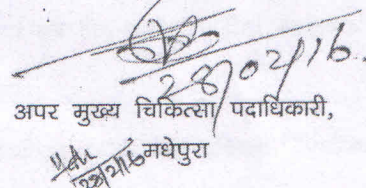 28/02/16
अपर मुख्य चिकित्सा पदाधिकारी,
मधेपुरा